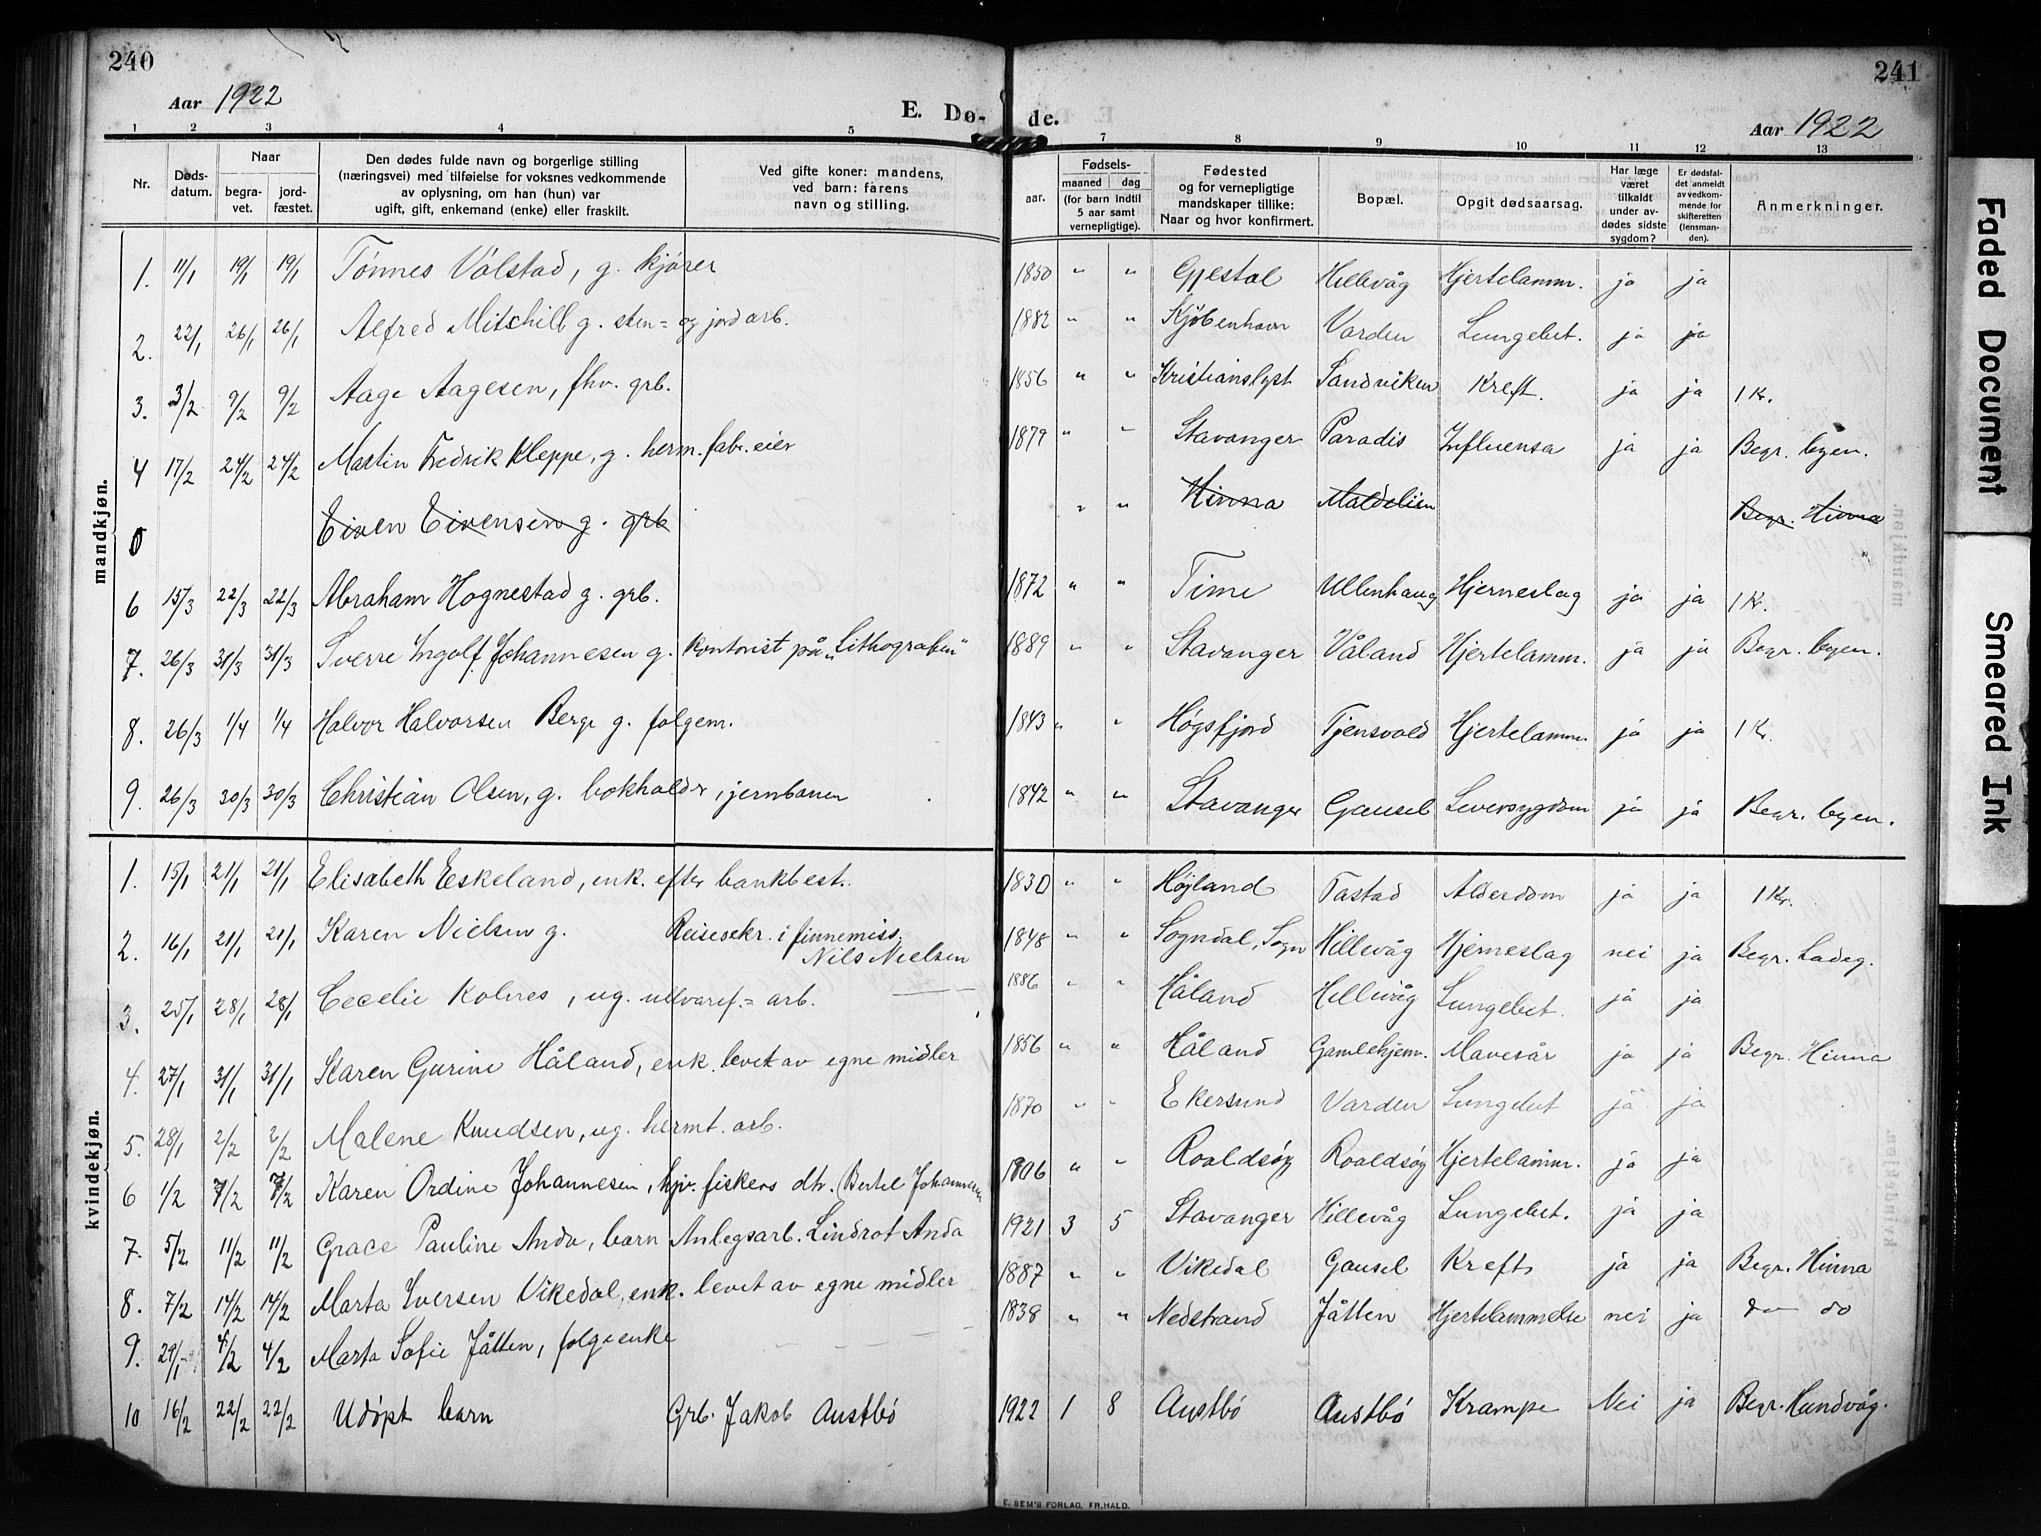 240
Aar 1922
E. Dø-
1 2 3 4 5
Nr. Døds-datum. Naar begra-vet. jord-fæstet. Den dødes fulde navn og borgerlige stilling (næringsvei) med tilføielse for voksnes vedkommende av oplysning, om han (hun) var ugift, gift, enkemand (enke) eller fraskilt. Ved gifte koner: mandens, ved barn: farens navn og stilling.
mandkjøn.
1. 11/1 19/1 19/1 Tønnes Vølstad, g. kjører
2. 22/1 26/1 26/1 Alfred Mitchill g. sten= og jordarb.
3. 3/2 9/2 9/2 Aage Aagesen, fhv. grb.
4 17/2 24/2 24/2 Martin Fredrik Kleppe, g. herm. fabr. eier
Eiven Eivensen g. grb
6 15/3 22/3 22/3 Abraham Hognestad g. grb.
7. 26/3 31/3 31/3 Sverre Ingolf Johannesen g. kontorist på „Lithografen"
8. 26/3 1/4 1/4 Halvor Halvorsen Berge g. folgem.
9. 26/3 30/3 30/3 Christian Olsen, g. bokholder i jernbanen
kvindekjøn.
1. 15/1 21/1 21/1 Elisabeth Eeskeland, enk. efter bankbest.
2. 16/1 21/1 21/1 Karen Nielsen g. Reisesekr. i finnemiss.
Nils Nielsen
3. 25/1 28/1 28/1 Cecelie Kolnes, ug. ullvaref.= arb.
4. 27/1 31/1 31/1 Karen Gurine Håland, enk. levet av egne midler
5. 28/1 2/2 2/2 Malene Knudsen, ug. hermt. arb.
6 1/2 7/2 7/2 Karen Ordine Johannesen, hjv. fiskers dtr. (Bertel Johannesen
7. 5/2 11/2 11/2 Grace Pauline Anda, barn Anlegsarb. Lindrot Anda
8. 7/2 14/2 14/2 Marta Iversen Vikedal, enk. levet av egne midler
9. 29/1 4/2 4/2 Marta Sofie Jåtten, folgeenke
10 16/2 22/2 22/2 Udøpt barn Grb. Jakob Austbø
241
de.
Aar 1922
7 8 9 10 11 12 13
aar. Fødsels- maaned dag (for barn indtil 5 aar samt vernepligtige). Fødested og for vernepligtige mandskaper tillike: Naar og hvor konfirmert. Bopæl. Opgit dødsaarsag. Har læge været tilkaldt under av-dødes sidste sygdom? Er dødsfal-det anmeldt av vedkom-mende for skifteretten (lensman-den). Anmerkninger.
1850 " " Gjestal Hillevåg Hjertelamm. ja ja
1882 " " Kjøbenhavn Varden Lungebet. ja ja
1856 " " Kristianslyst Sandviken Kreft. ja ja 1 Kr.
1879 " " Stavanger Paradis Influensa ja ja Begr. byen.
" " Hinna Maldelien Begr. Hinna
1872 " " Time Ullenhaug Hjerneslag ja ja 1 Kr.
1889 " " Stavanger Våland Hjertelamm. ja ja Begr. byen.
1843 " " Høgsfjord Tjensvold Hjertelamm. ja ja 1 Kr.
1842 " " Stavanger Gausel Leversygdom ja ja Begr. byen.
1830 " " Højland Tastad Alderdom ja ja 1 Kr.
1848 " " Sogndal, Sogn Hillevåg Hjerneslag nei ja Begr. Ladeg.
1886 " " Håland Hillevåg Lungebet. ja ja
1856 " " Håland Gamlehjem. Mavesår ja ja Begr. Hinna
1870 " " Ekersund Varden Lungebet ja ja
1906 " " Roaldsøy Roaldsøy Hjertelamm. ja ja
1921 3 5 Stavanger Hillevåg Lungebet. ja ja
1887 " " Vikedal Gausel Kreft ja ja Begr. Hinna
1838 " " Nedstrand Jåtten Hjertelammelse nei ja do do
1922 1 8 Austbø Austbø Krampe Nei ja Begr. Hundvåg.
E. SEM'S FORLAG, FR.HALD.
Faded Document
Smeared Ink